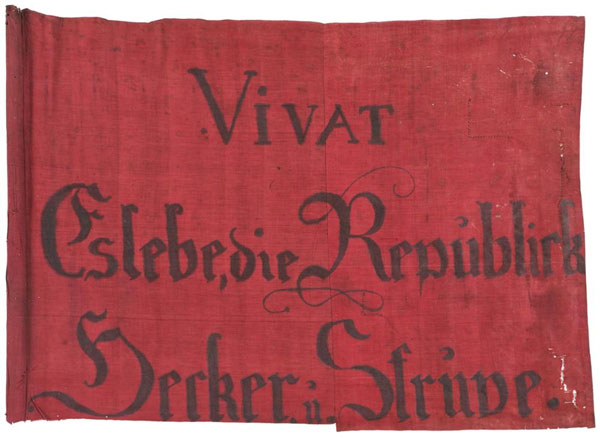 VIVAT
Es lebe, die Repŭblick
Hecker. ŭ. Strŭve.